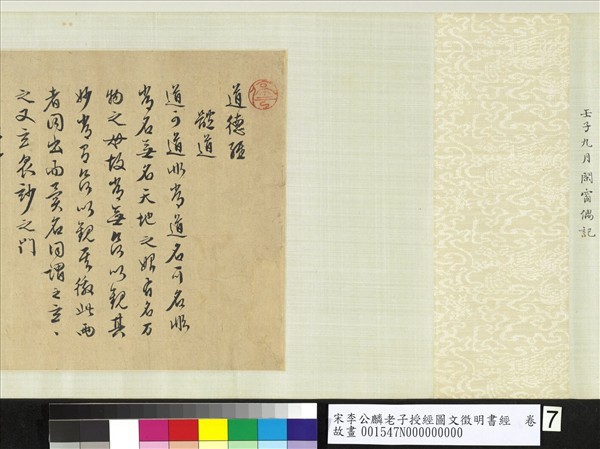 壬子九月閑窗偶記
道德經
體道
道可道非常道名可名非
常名無名天地之始有名万
物之母故常無欲以觀其
妙常有欲以觀其徼此兩
者同出而異名同謂之玄、
之又玄衆妙之門
宋李公麟老子授經圖文徵明書經 卷
故畫 001547N000000000
7